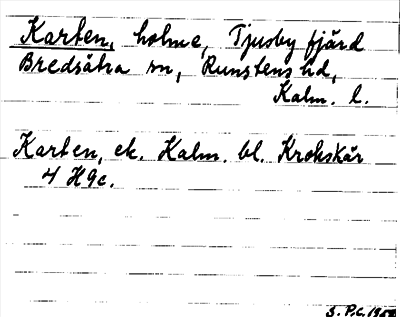 Karten, holme, Tjusby fjärd
Bredsätra sn, Runstens hd,
Kalm. l.
Karten, ek. Kalm. bl. Krokskär
4 H 9c.
S. P.C. 1950